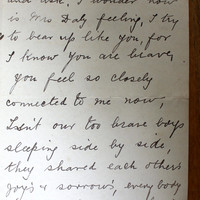 and ask, I wonder how
is Mrs Daly feeling, I try
to bear up like you, for
I know you are brave,
you feel so closely
connected to me now,
Isn't our too brave boys
sleeping side by side,
they shared each other's
joys & sorrow's, everybody